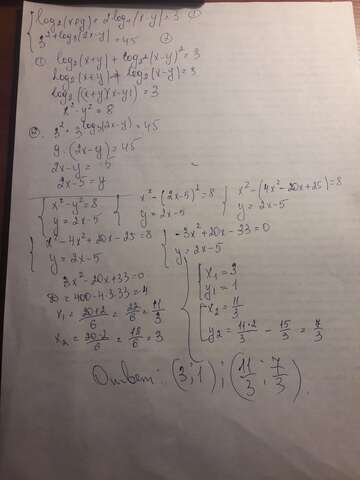 log₂(x+y) + 2log₄(x-y) = 3 ①
3^(2+log₃(2x-y)) = 45 ②
① log₂(x+y) + log₂²(x-y)² = 3
log₂(x+y) + log₂(x-y) = 3
log₂((x+y)(x-y)) = 3
x²-y² = 8
② 3² · 3^(log₃(2x-y)) = 45
9 · (2x-y) = 45
2x-y = 5
2x-5 = y
{ x²-y²=8 { x²-(2x-5)²=8 { x²-(4x²-20x+25)=8
y = 2x-5 y = 2x-5 y = 2x-5
{ x²-4x²+20x-25=8 { -3x²+20x-33=0
y = 2x-5 y = 2x-5
3x²-20x+33=0
D = 400-4·3·33 = 4
x₁ = (20+2)/6 = 22/6 = 11/3
x₂ = (20-2)/6 = 18/6 = 3
{ x₁ = 3
y₁ = 1
{ x₂ = 11/3
y₂ = (11·2)/3 - 15/3 = 7/3
Ответ: (3;1) ; (11/3 ; 7/3).